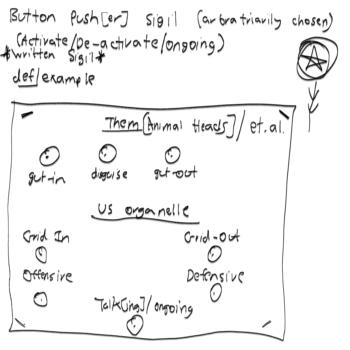 Button Push[er] Sigil (arbratriavily chosen)
(Activate/De-activate/ongoing)
*written Sigil*
def/example
Them[Animal Heads]/et.al.
get-in disguise get-out
US organelle
Grid In Grid-Out
Offensive Defensive
Talk[ing]/ongoing